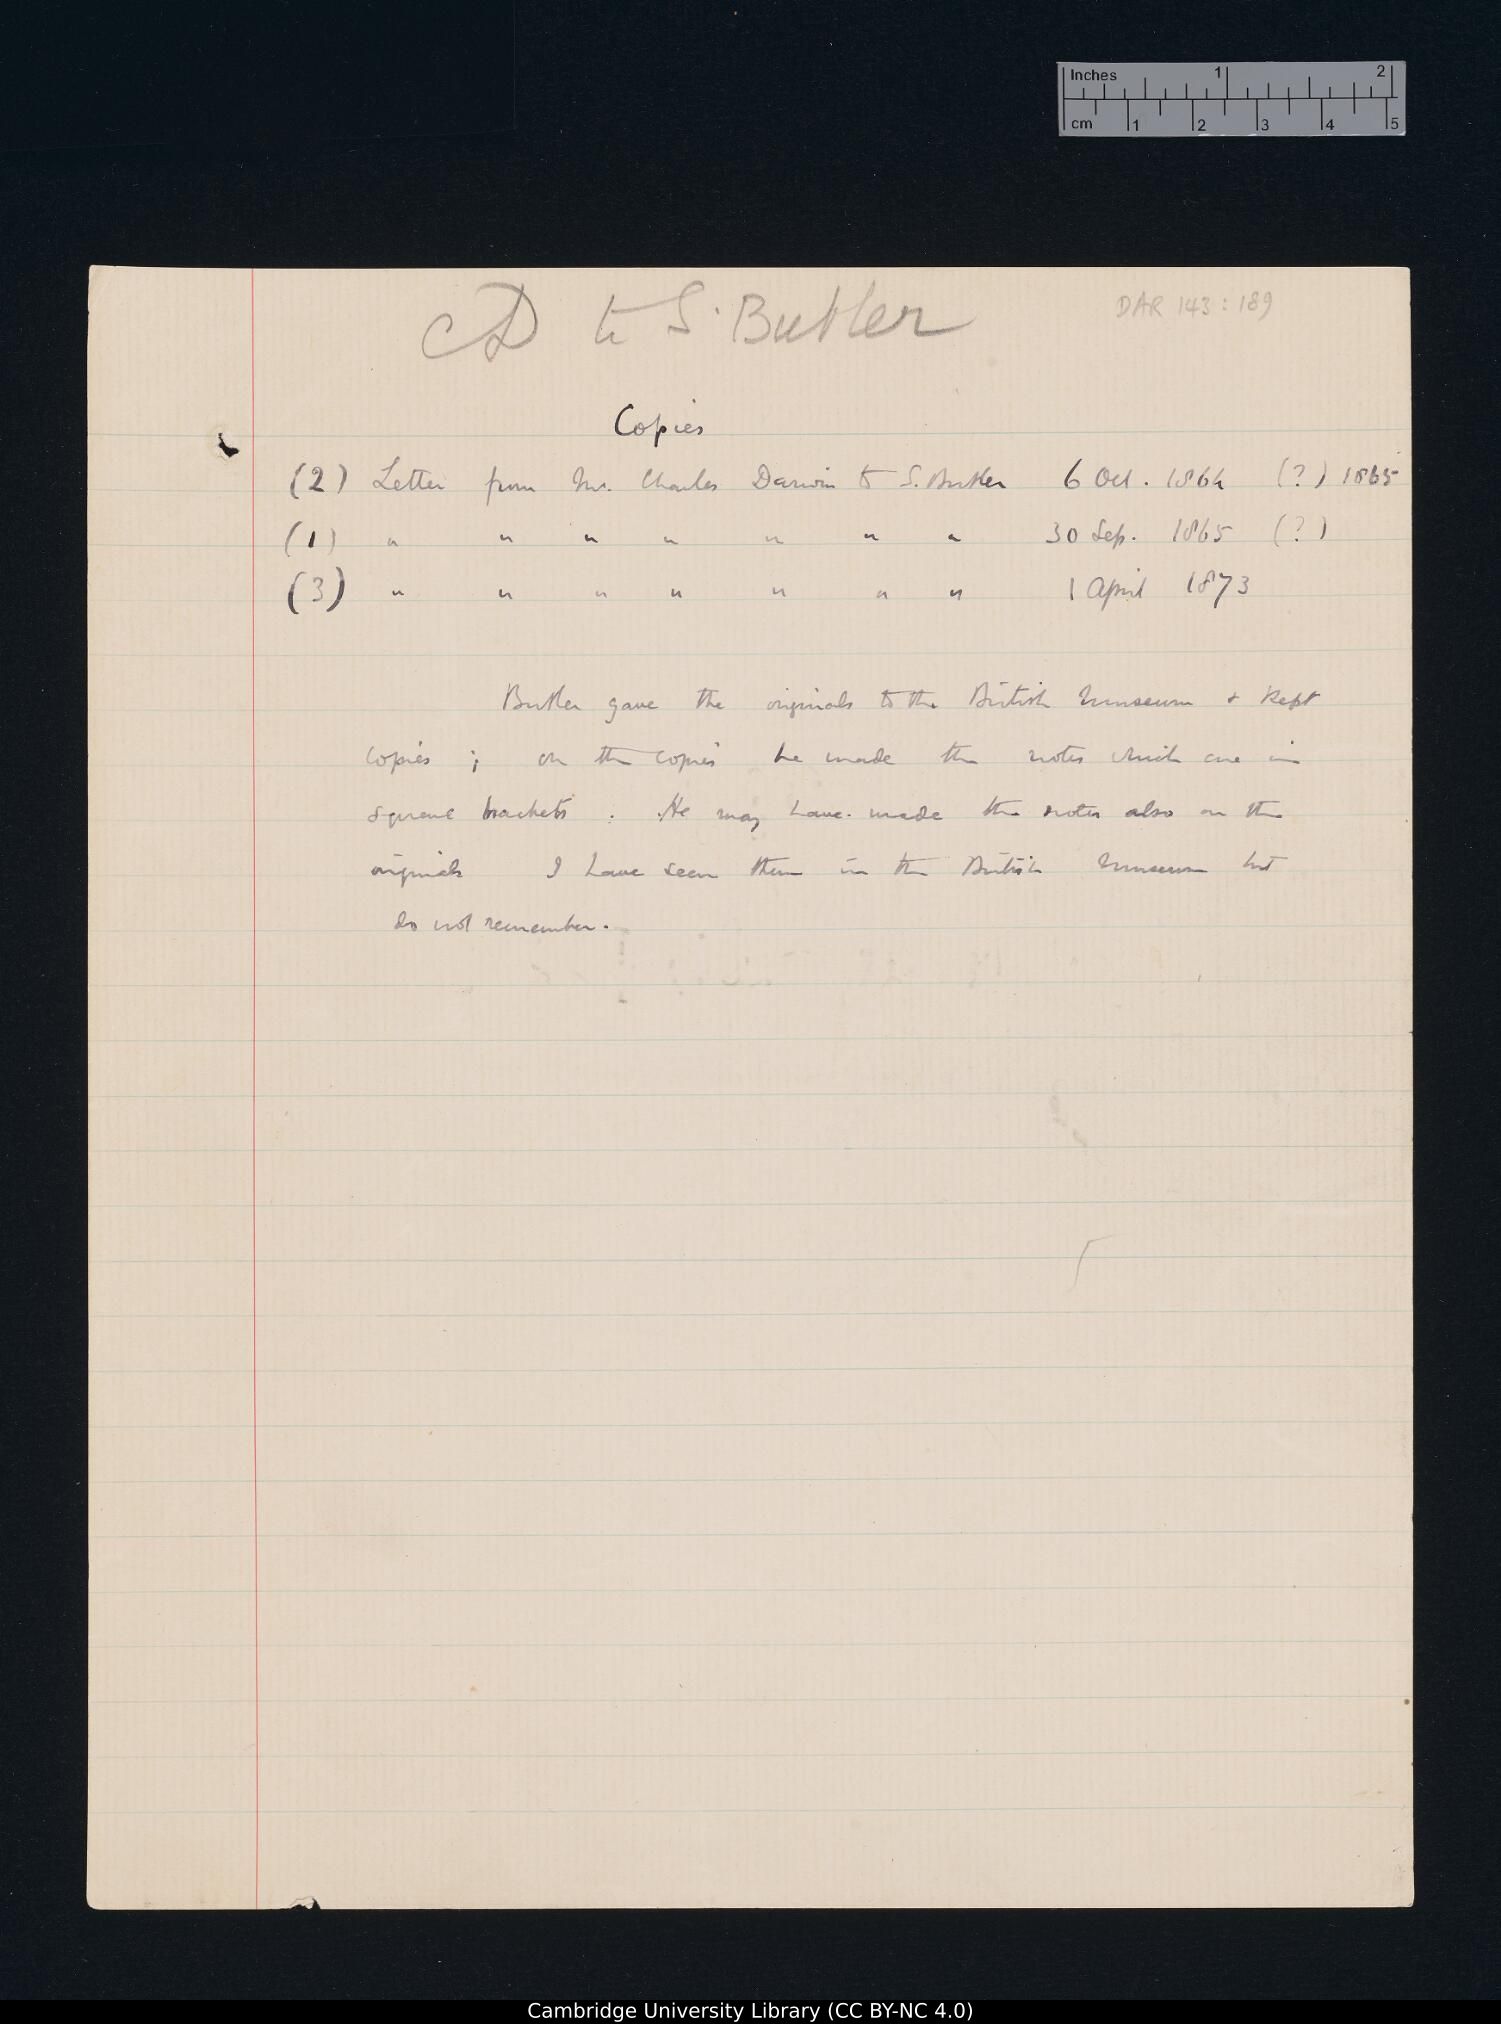 Inches 1 2
cm 1 2 3 4 5
CD to S. Butler
DAR 143 : 189
Copies
(2) Letter from Mr. Charles Darwin to S. Butler 6 Oct. 1864 (?) 1865
(1) " " " " " " " 30 Sep. 1865 (?)
(3) " " " " " " " 1 April 1873
Butler gave the originals to the British Museum & kept
copies ; on the copies he made the notes which are in
square brackets . He may have made the notes also on the
originals I have seen them in the British Museum but
do not remember.
Cambridge University Library (CC BY-NC 4.0)